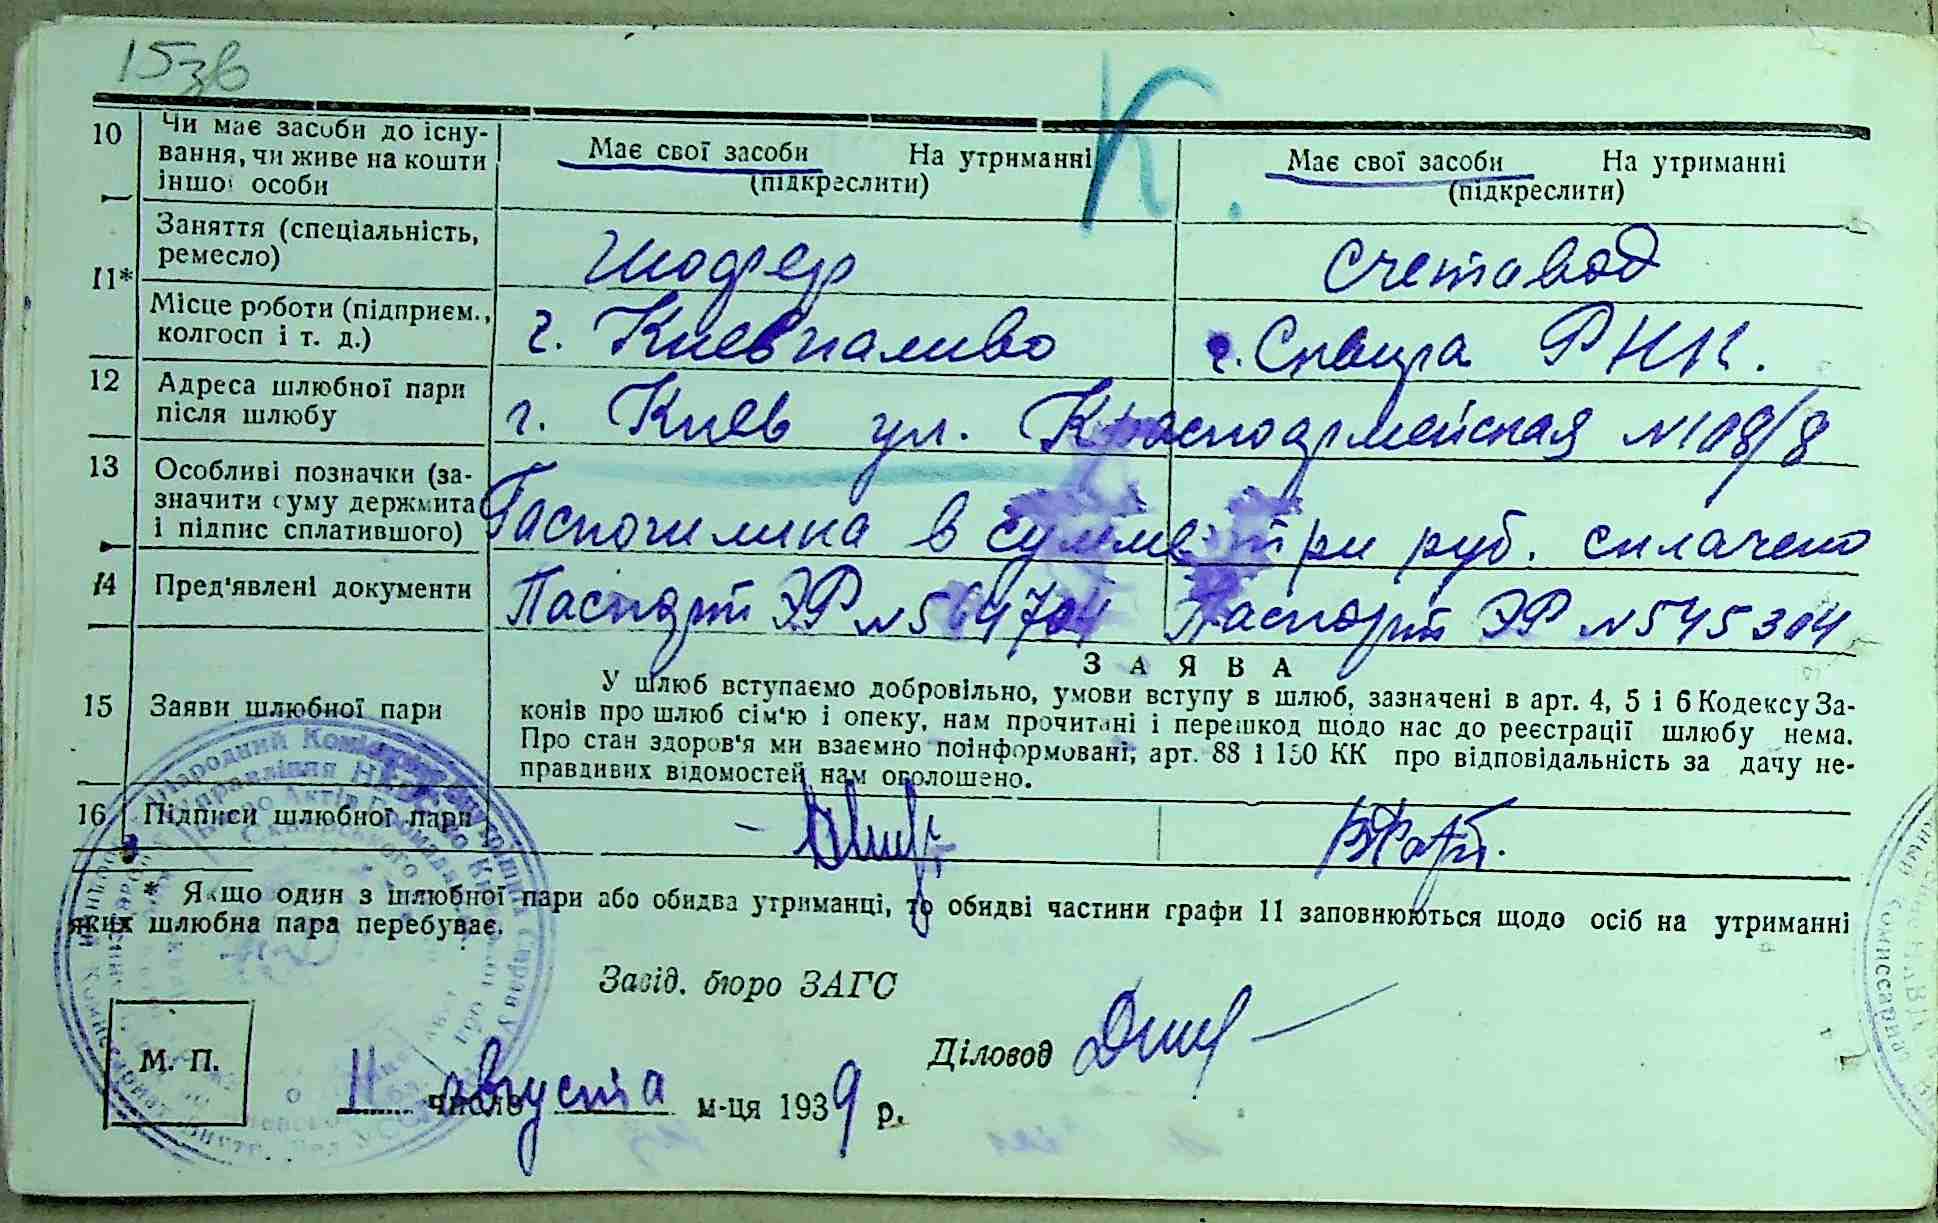 15зв
К.
10 Чи має засоби до існу-
вання, чи живе на кошти
іншої особи
Має свої засоби На утриманні
(підкреслити)
Має свої засоби На утриманні
(підкреслити)
11*
Заняття (спеціальність,
ремесло)
Шофер
Счетавод
Місце роботи (підприєм.,
колгосп і т. д.)
г. Киевпаливо
г. Сквира РНК.
12 Адреса шлюбної пари
після шлюбу
г. Киев ул. Красноармейская №108/8
13 Особливі позначки (за-
значити суму держмита
і підпис сплатившого)
Госпошлина в сумме три руб. сплачено
14 Пред'явлені документи
Паспорт ЭР №564704 Паспорт ЭР №545304
ЗАЯВА
15 Заяви шлюбної пари
У шлюб вступаємо добровільно, умови вступу в шлюб, зазначені в арт. 4, 5 і 6 Кодексу За-
конів про шлюб сім'ю і опеку, нам прочитані і перешкод щодо нас до реєстрації шлюбу нема.
Про стан здоров'я ми взаємно поінформовані; арт. 88 і 150 КК про відповідальність за дачу не-
правдивих відомостей нам оголошено.
16 Підписи шлюбної пари
* Якщо один з шлюбної пари або обидва утриманці, то обидві частини графи 11 заповнюються щодо осіб на утриманні
яких шлюбна пара перебуває.
Завід. бюро ЗАГС
Діловод
М. П.
11 число августа м-ця 1939 р.